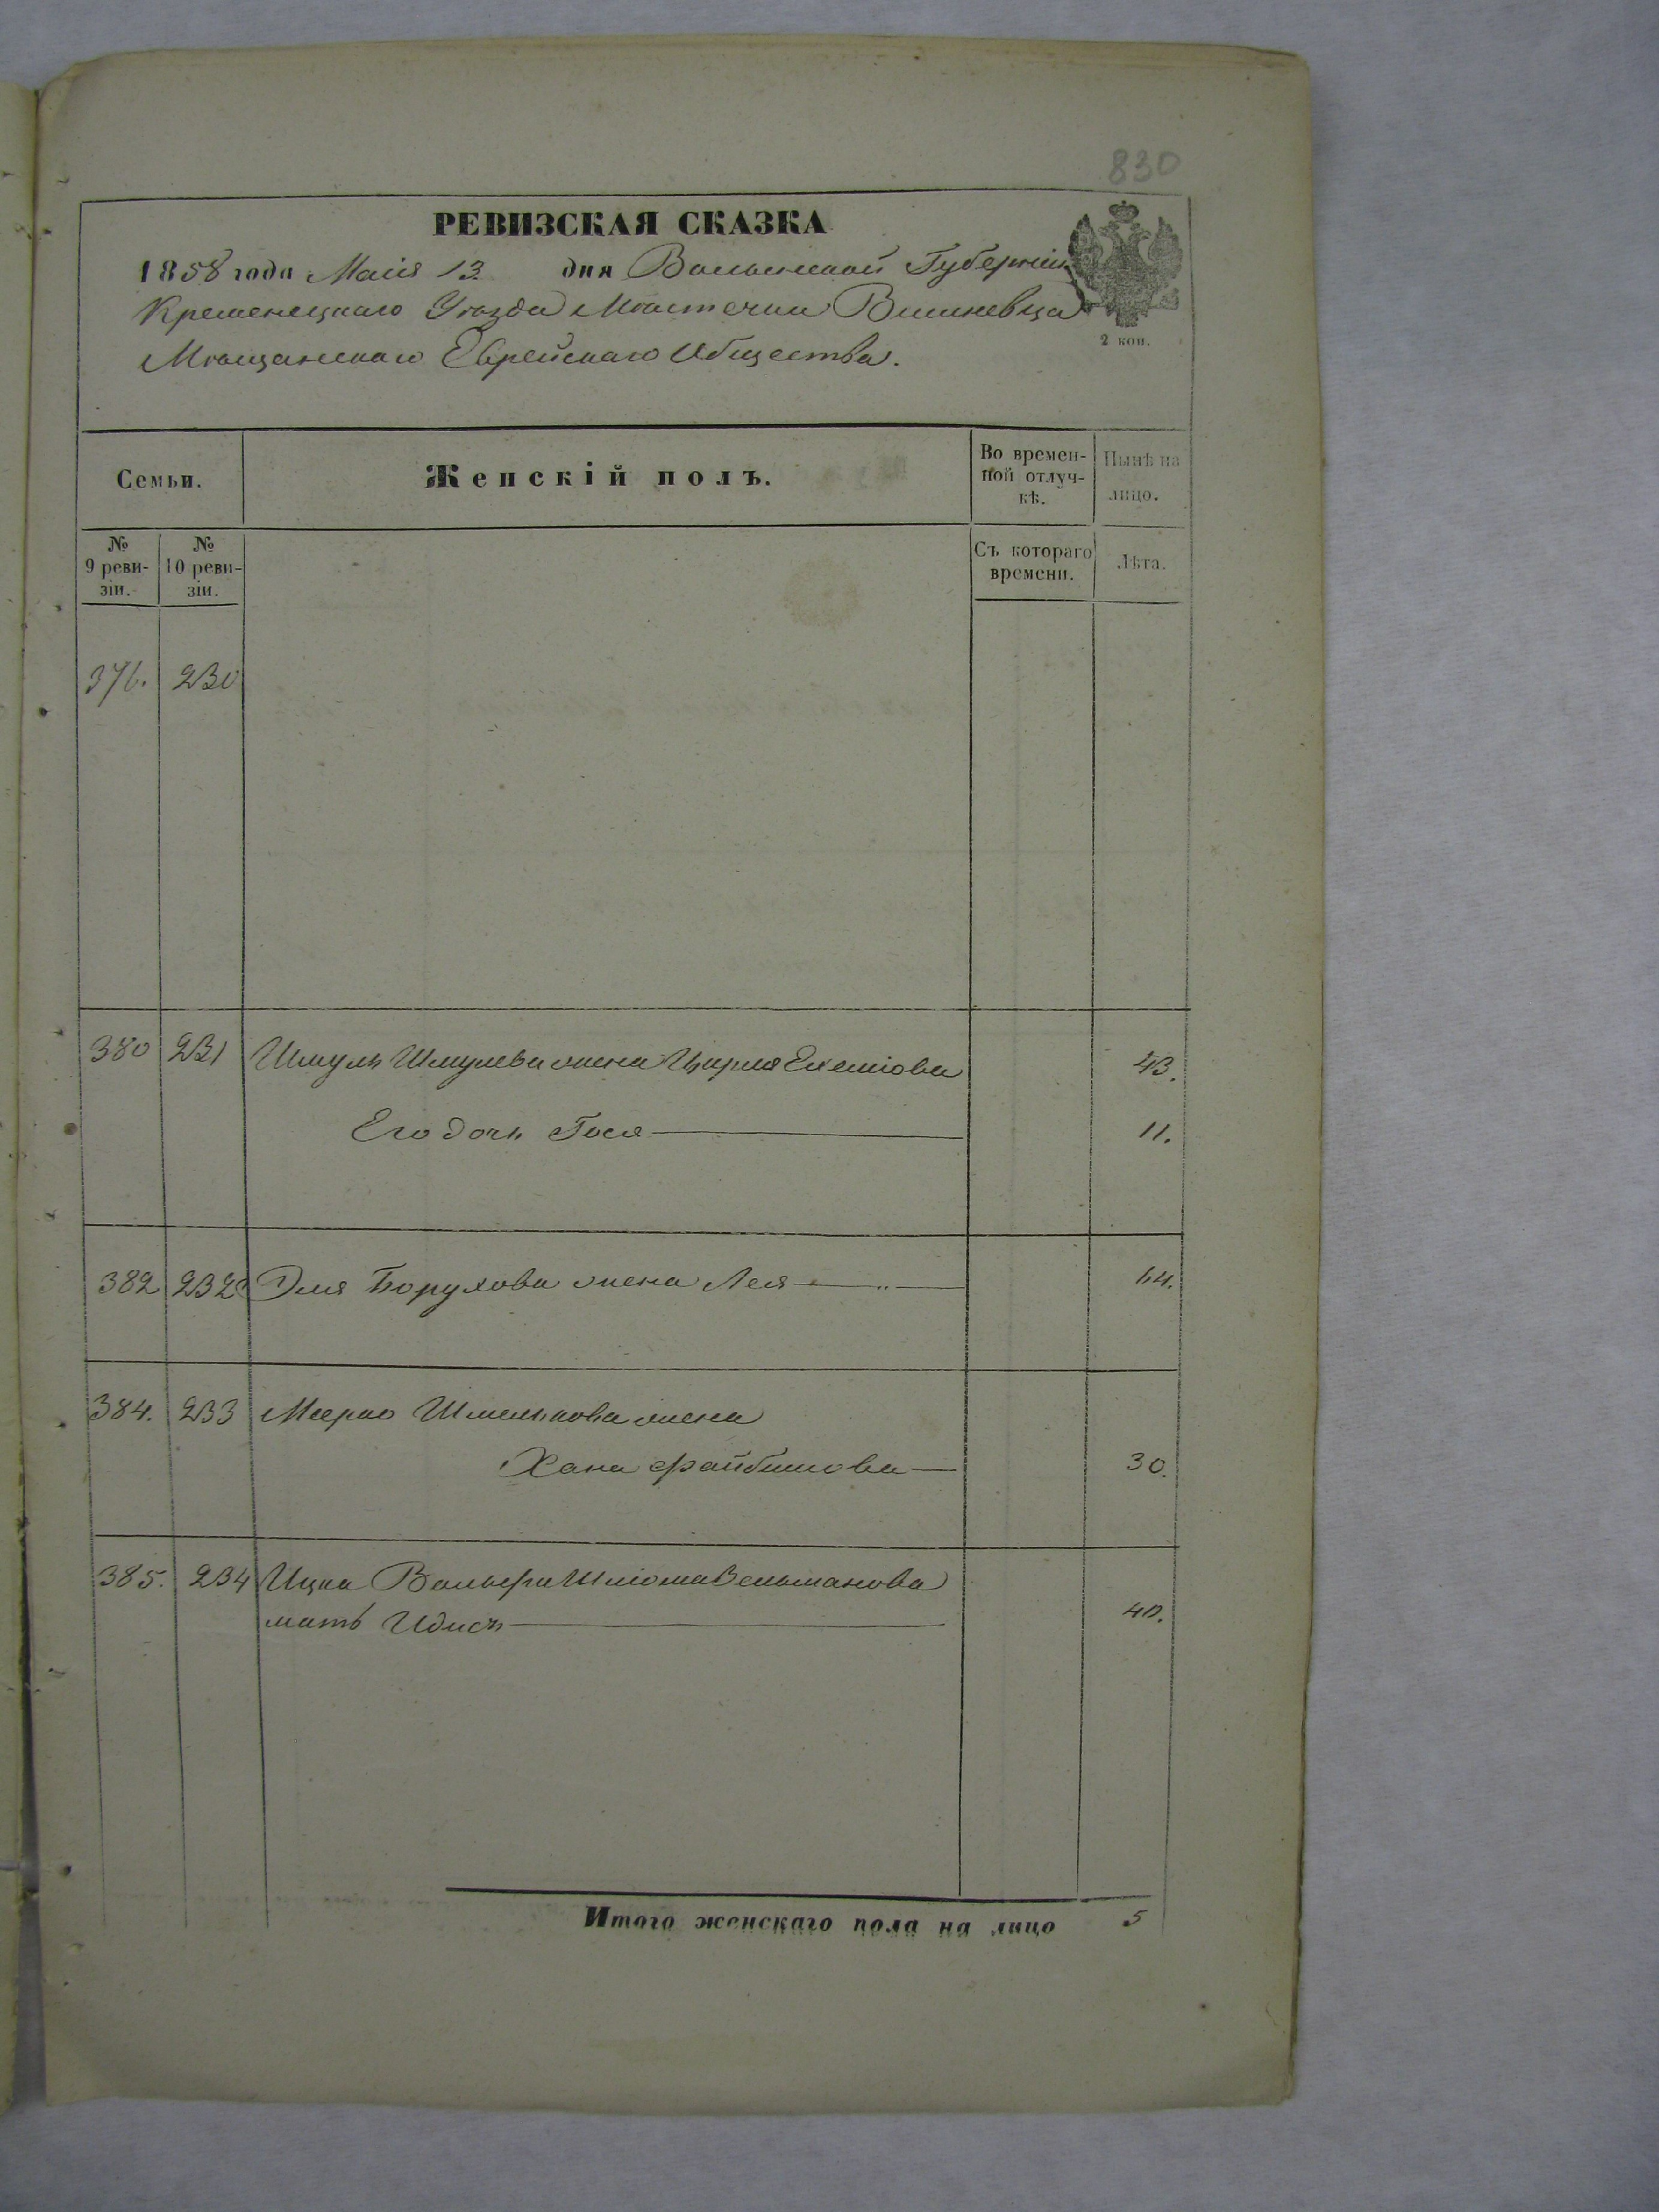 830
РЕВИЗСКАЯ СКАЗКА
1858 года Маія 13 дня Волынской Губерніи
Кременецкаго Уѣзда Мѣстечка Вишневца
Мѣщанскаго Еврейскаго Общества.
2 коп.
Семьи. Женскій полъ. Во времен-ной отлуч-кѣ. Нынѣ на лицо.
№ 9 реви-зіи. № 10 реви-зіи. Съ котораго времени. Лѣта.
376. 230
380 231 Шмуль Шмулева жена Цирля 43.
Его дочь Гося 11.
382 232 Эля Борухова жена Лея — „ — 64.
384. 233 Меерко Шмелькова жена
Хана Файбишова 30.
385. 234 Ицка Вольфа Шліома Вельманова
мать Идись 40.
Итого женскаго пола на лицо 5